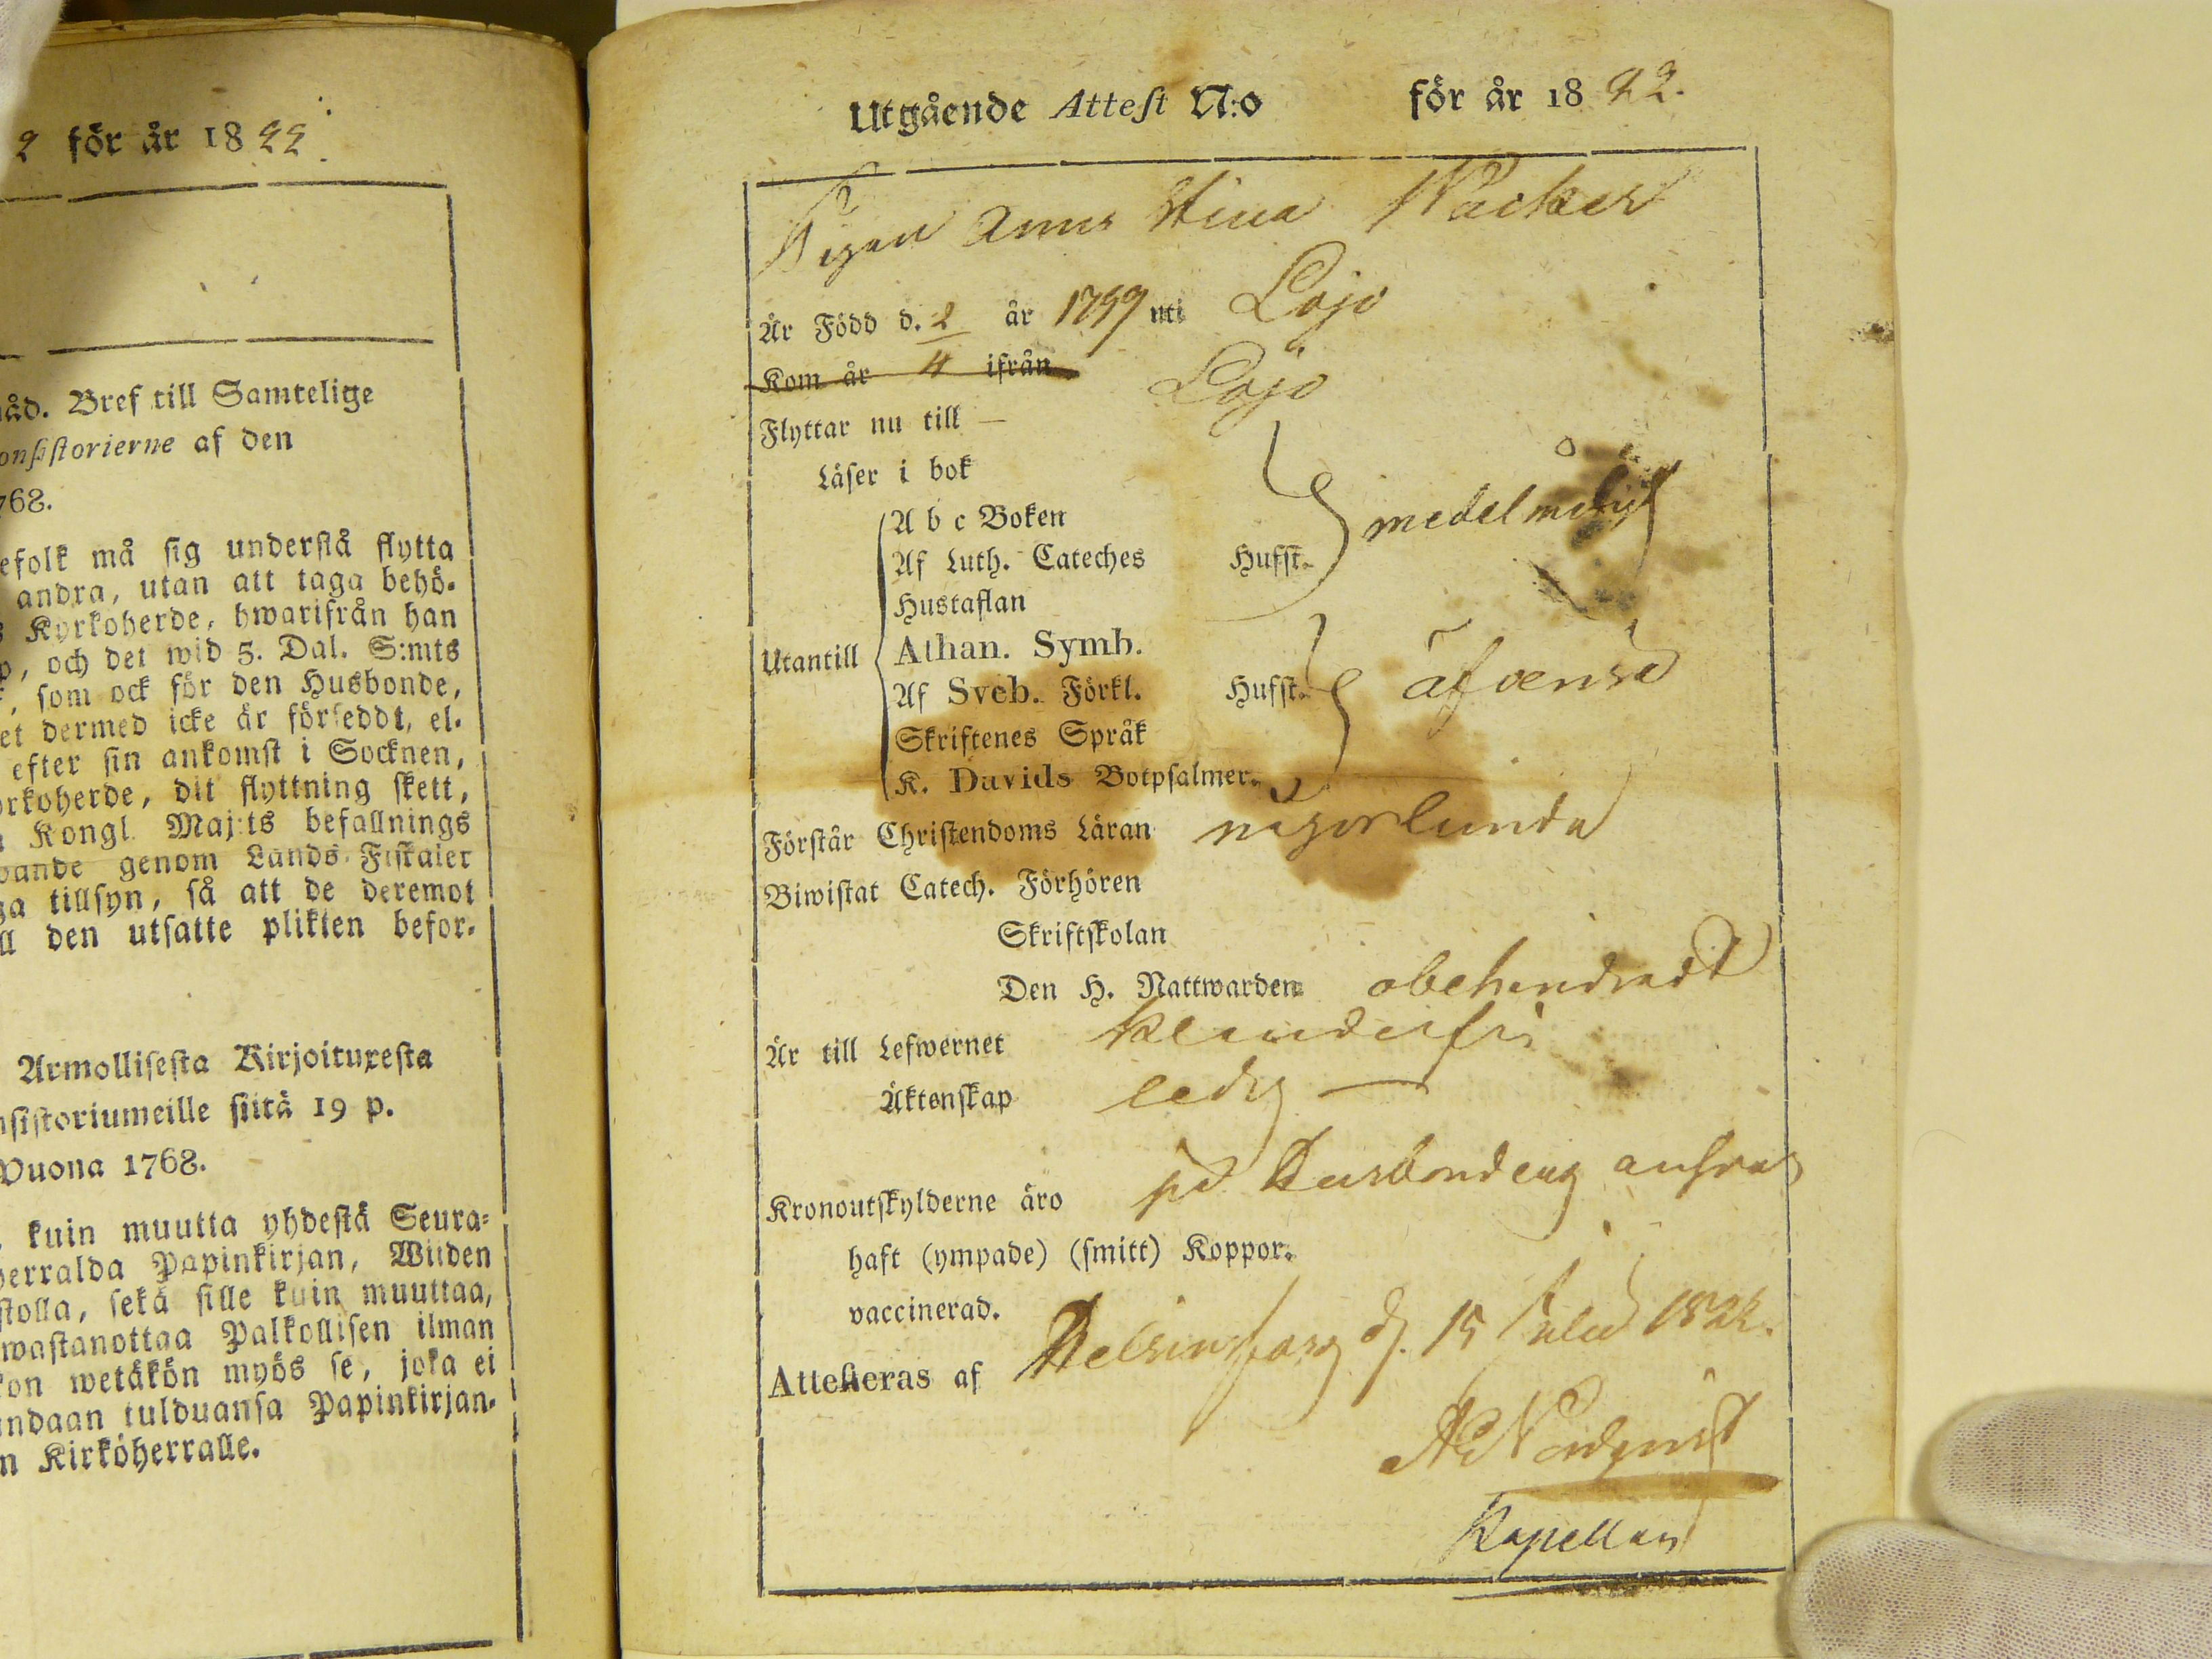 2 för år 1822.
åd. Bref till Samtelige
onsistorierne af den
768.
efolk må sig understå flytta
andra, utan att taga behö-
s Kyrkoherde, hwarifrån han
p, och det wid 5. Dal. S:mts
, som ock för den Husbonde,
et dermed icke är förseddt, el-
efter sin ankomst i Socknen,
rkoherde, dit flyttning skett,
Kongl. Maj:ts befallnings
bande genom Lands Fiskaler
ga tillsyn, så att de deremot
ll den utsatte plikten befor-
Armollisesta Kirjoituxesta
nsistoriumeille siitä 19 p.
Vuona 1768.
, kuin muutta yhdestä Seura-
herralda Papinkirjan, Wiiden
stolla, sekä sille kuin muuttaa,
wastanottaa Palkollisen ilman
kon wetäkön myös se, joka ei
indaan tulduansa Papinkirjan-
n Kirkoherralle.
Utgående Attest N:o för år 1822.
Pigan Anna Stina Wacker
Är Född d. 2/4 år 1799 uti Lojo
Kom år ifrån
Flyttar nu till — Lojo
Läser i bok
A b c Boken
Af Luth. Cateches Hufst. medelmåtigt
Hustaflan
Utantill Athan. Symb.
Af Sveb. Förkl. Hufst. äfvenså
Skriftenes Språk
K. Davids Botpsalmer.
Förstår Christendoms Läran någorlunda
Biwistat Catech. Förhören
Skriftskolan
Den H. Nattwarden obehindradt
Är till Lefwernet klanderfri
Äktenskap ledig —
Kronoutskylderne äro på Husbondens ansvar
haft (ympade) (smitt) Koppor.
vaccinerad.
Attesteras af Helsingfors d. 15 Julii 1822.
Nordqvist
Kapellan